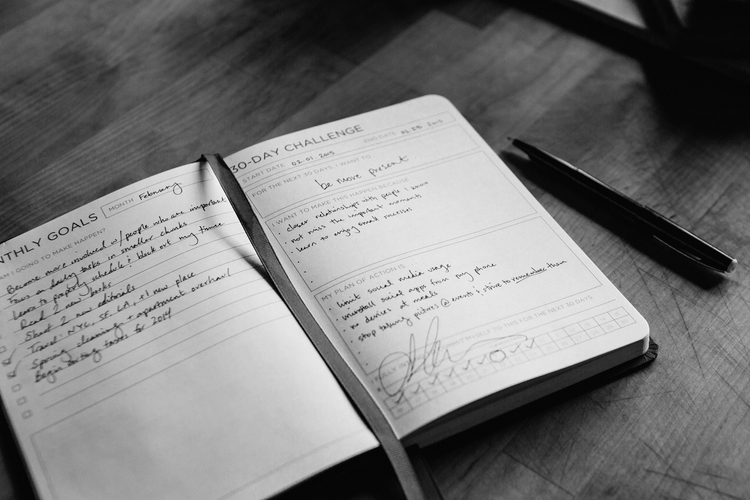 NTHLY GOALS
MONTH February
AM I GOING TO MAKE HAPPEN?
Become more involved w/ people who are important
Focus on daily tasks in smaller chunks
Learn to properly schedule & block out my times
Read 2 new books
Shoot 2 new editorials
Travel: NYC, SF, LA, +1 new place
Spring cleaning + apartment overhaul
Begin doing taxes for 2014
30-DAY CHALLENGE
START DATE 02.01.2015
END DATE 2015
FOR THE NEXT 30 DAYS, I WANT TO
be more present
I WANT TO MAKE THIS HAPPEN BECAUSE
closer relationships with people I know
not miss the important moments
learn to enjoy small successes
MY PLAN OF ACTION IS
limit social media usage
uninstall social apps from my phone
no devices at meals
stop taking pictures @ events, strive to remember them
MYSELF TO THIS FOR THE NEXT 30 DAYS